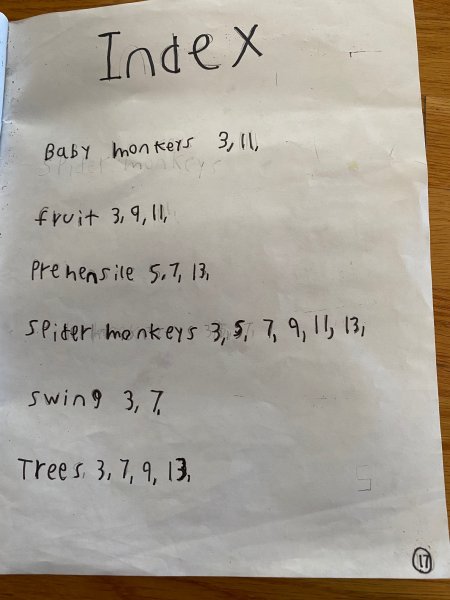 Index
Baby monkeys 3, 11,
fruit 3, 9, 11,
Prehensile 5, 7, 13,
Spider monkeys 3, 5, 7, 9, 11, 13,
swing 3, 7,
Trees 3, 7, 9, 13,
17